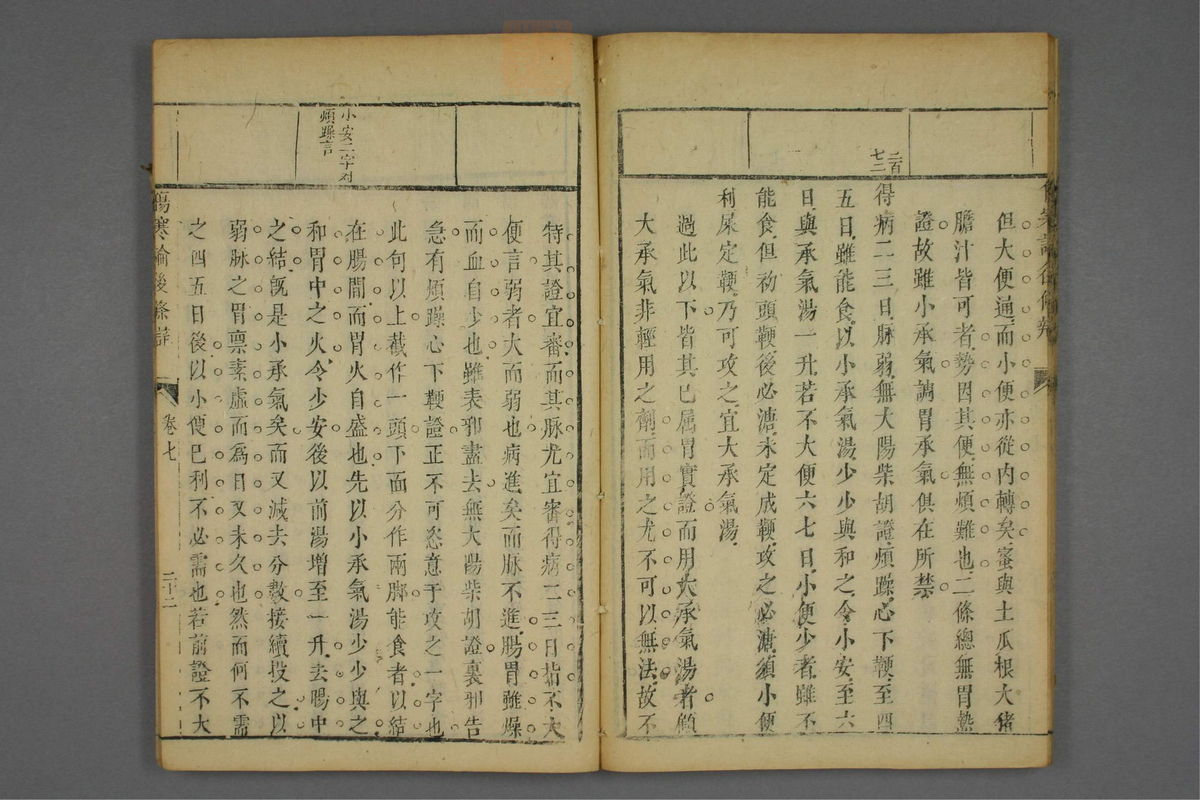 二百七二
但大便通而小便亦從內轉矣蜜與土瓜根大豬
膽汁皆可者勢因其便無煩難也二條總無胃熱
證故雖小承氣調胃承氣俱在所禁
得病二三日脉弱無太陽柴胡證煩躁心下鞕至四
五日雖能食以小承氣湯少少與和之令小安至六
日與承氣湯一升若不大便六七日小便少者雖不
能食但初頭鞕後必溏未定成鞕攻之必溏須小便
利屎定鞕乃可攻之宜大承氣湯
過此以下皆其已屬胃實證而用大承氣湯者顧
大承氣非輕用之劑而用之尤不可以無法故不
小安二字对
煩躁言
特其證宜審而其脉尤宜審得病二三日指不大
便言弱者大而弱也病進矣而脉不進腸胃雖燥
而血自少也雖表邪盡去無太陽柴胡證裏邪告
急有煩躁心下鞕證正不可恣意于攻之一字也
此句以上截作一頭下面分作兩脚能食者以結
在腸間而胃火自盛也先以小承氣湯少少與之
和胃中之火令少安後以前湯增至一升去腸中
之結旣是小承氣矣而又減去分數接續投之以
弱脉之胃禀素虛而爲日又未久也然而何不需
之四五日後以小便已利不必需也若前證不大
傷寒論後條辯
卷七
二十二